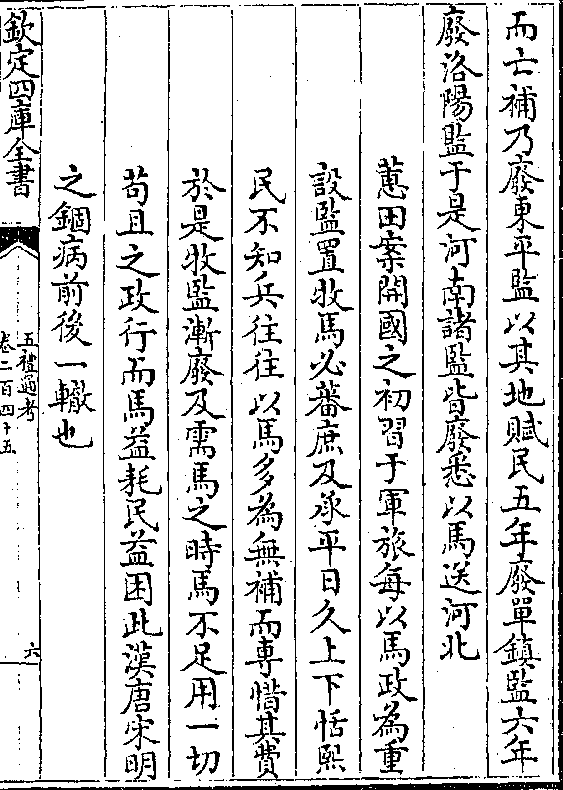 而亡補乃廢東平監以其地賦民五年廢單鎮監六年
廢洛陽監于是河南諸監皆廢悉以馬送河北
蕙田案開國之初習于軍旅每以馬政為重
設監置牧馬必蕃庶及承平日久上下恬熙
民不知兵往往以馬多為無補而專惜其費
於是牧監漸廢及需馬之時馬不足用一切
苟且之政行而馬益耗民益困此漢唐宋明
之錮病前後一轍也
欽定四庫全書
五禮通考
卷二百四十五
六